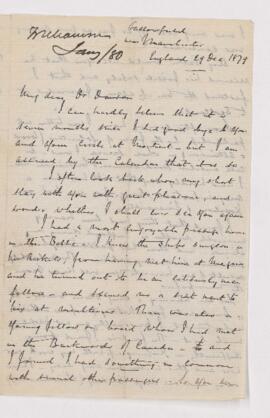 Williamson
Jany/80
near Manchester
England 29 Dec. 1879
My dear Dr Dawson
I can hardly believe that it is
seven months since I bid good bye to you
and your circle at Montreal – but I am
assured by the Calendar that it is so
I often look back upon my short
stay with you with great pleasure, and
wonder whether I shall ever see you again
I had a most enjoyable passage home
in the Baltic. I knew the ships surgeon
from having met him at
and he turned out to be an
fellow – and secured me a seat next to
him at mealtimes. There was also a
young fellow on board whom I had met
in the Backwoods of Canada – &
I found I had something in common
with several other passengers